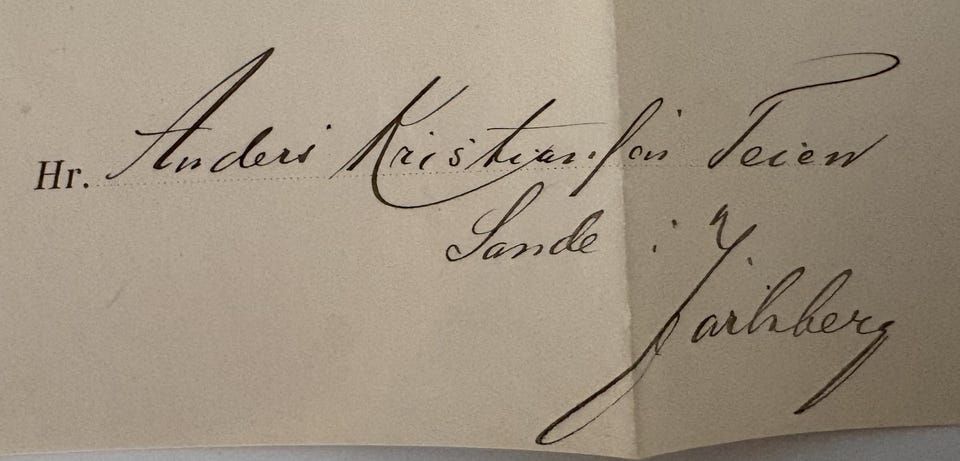 Hr. Anders Kristiansen Teien
Sande i Jarlsberg